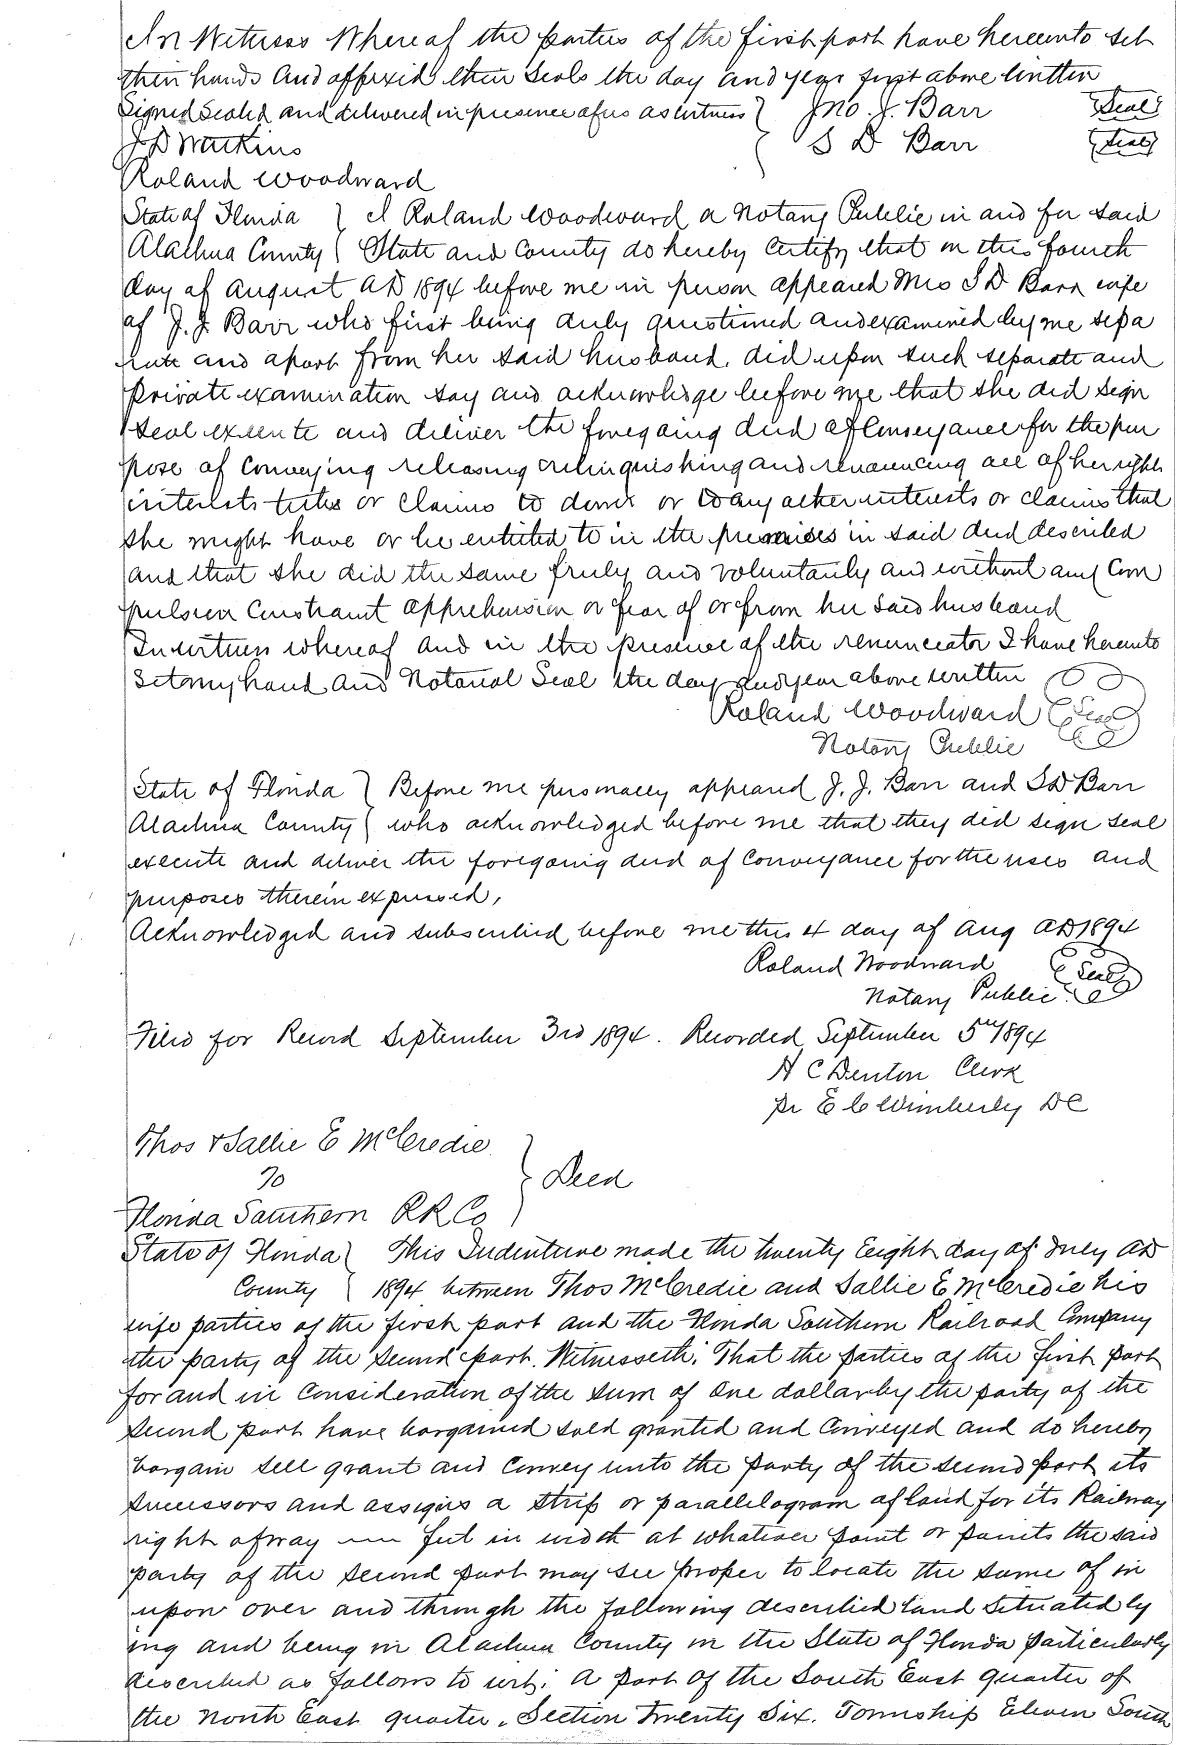 In Witness Whereof the parties of the first part have hereunto set
their hands and affixed their seals the day and year first above written
Signed Sealed and delivered in presence of us as witness } Jno. J. Barr (Seal)
J D Watkins } S D Barr (Seal)
Roland Woodward
State of Florida } I Roland Woodward a Notary Public in and for said
Alachua County } State and County do hereby certify that on this fourth
day of August AD 1894 before me in person appeared Mrs S D Barr wife
of J. J. Barr who first being duly questioned and examined by me sepa
rate and apart from her said husband, did upon such separate and
private examination say and acknowledge before me that she did sign
seal execute and deliver the foregoing deed of Conveyance for the pur
pose of conveying releasing relinquishing and renouncing all of her right
interests titles or claims to dower or to any other interests or claims that
she might have or be entitled to in the premises in said deed described
and that she did the same freely and voluntarily and without any Com
pulsion Constraint apprehension or fear of or from her said husband
In witness whereof and in the presence of the renunciator I have hereunto
set my hand and Notarial Seal the day and year above written
Roland Woodward (Seal)
Notary Public
State of Florida } Before me personally appeared J. J. Barr and S D Barr
Alachua County } who acknowledged before me that they did sign seal
execute and deliver the foregoing deed of conveyance for the uses and
purposes therein expressed,
Acknowledged and subscribed before me this 4 day of Aug AD 1894
Roland Woodward (Seal)
Notary Public
Filed for Record September 3rd 1894. Recorded September 5th 1894
H C Denton Clerk
pr E C Wimberly DC
Thos & Sallie E McCredie
To } Deed
Florida Southern R R Co
State of Florida } This Indenture made the twenty Eight day of July AD
County } 1894 between Thos McCredie and Sallie E McCredie his
wife parties of the first part and the Florida Southern Railroad Company
the party of the second part. Witnesseth; That the parties of the first part
for and in consideration of the sum of one dollar by the party of the
second part have bargained sold granted and conveyed and do hereby
bargain sell grant and convey unto the party of the second part its
successors and assigns a strip or parallelogram of land for its Railway
right of way feet in width at whatever point or points the said
party of the second part may see proper to locate the same of in
upon over and through the following described land situated ly
ing and being in Alachua County in the State of Florida particularly
described as follows to wit; a part of the South East quarter of
the North East quarter, Section Twenty Six. Township Eleven South